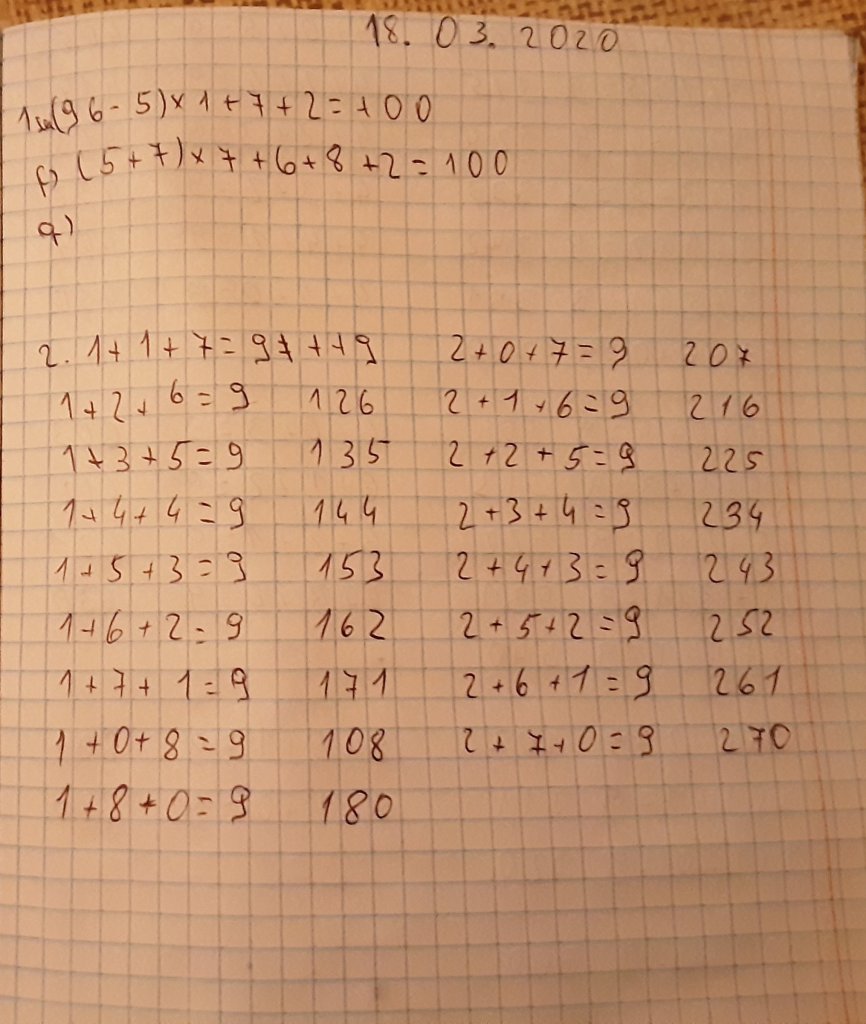 18. 03. 2020
(96-5)×1+7+2=100
f) (5+7)×7+6+8+2=100
g)
2. 1+1+7=9 117 2+0+7=9 207
1+2+6=9 126 2+1+6=9 216
1+3+5=9 135 2+2+5=9 225
1+4+4=9 144 2+3+4=9 234
1+5+3=9 153 2+4+3=9 243
1+6+2=9 162 2+5+2=9 252
1+7+1=9 171 2+6+1=9 261
1+0+8=9 108 2+7+0=9 270
1+8+0=9 180